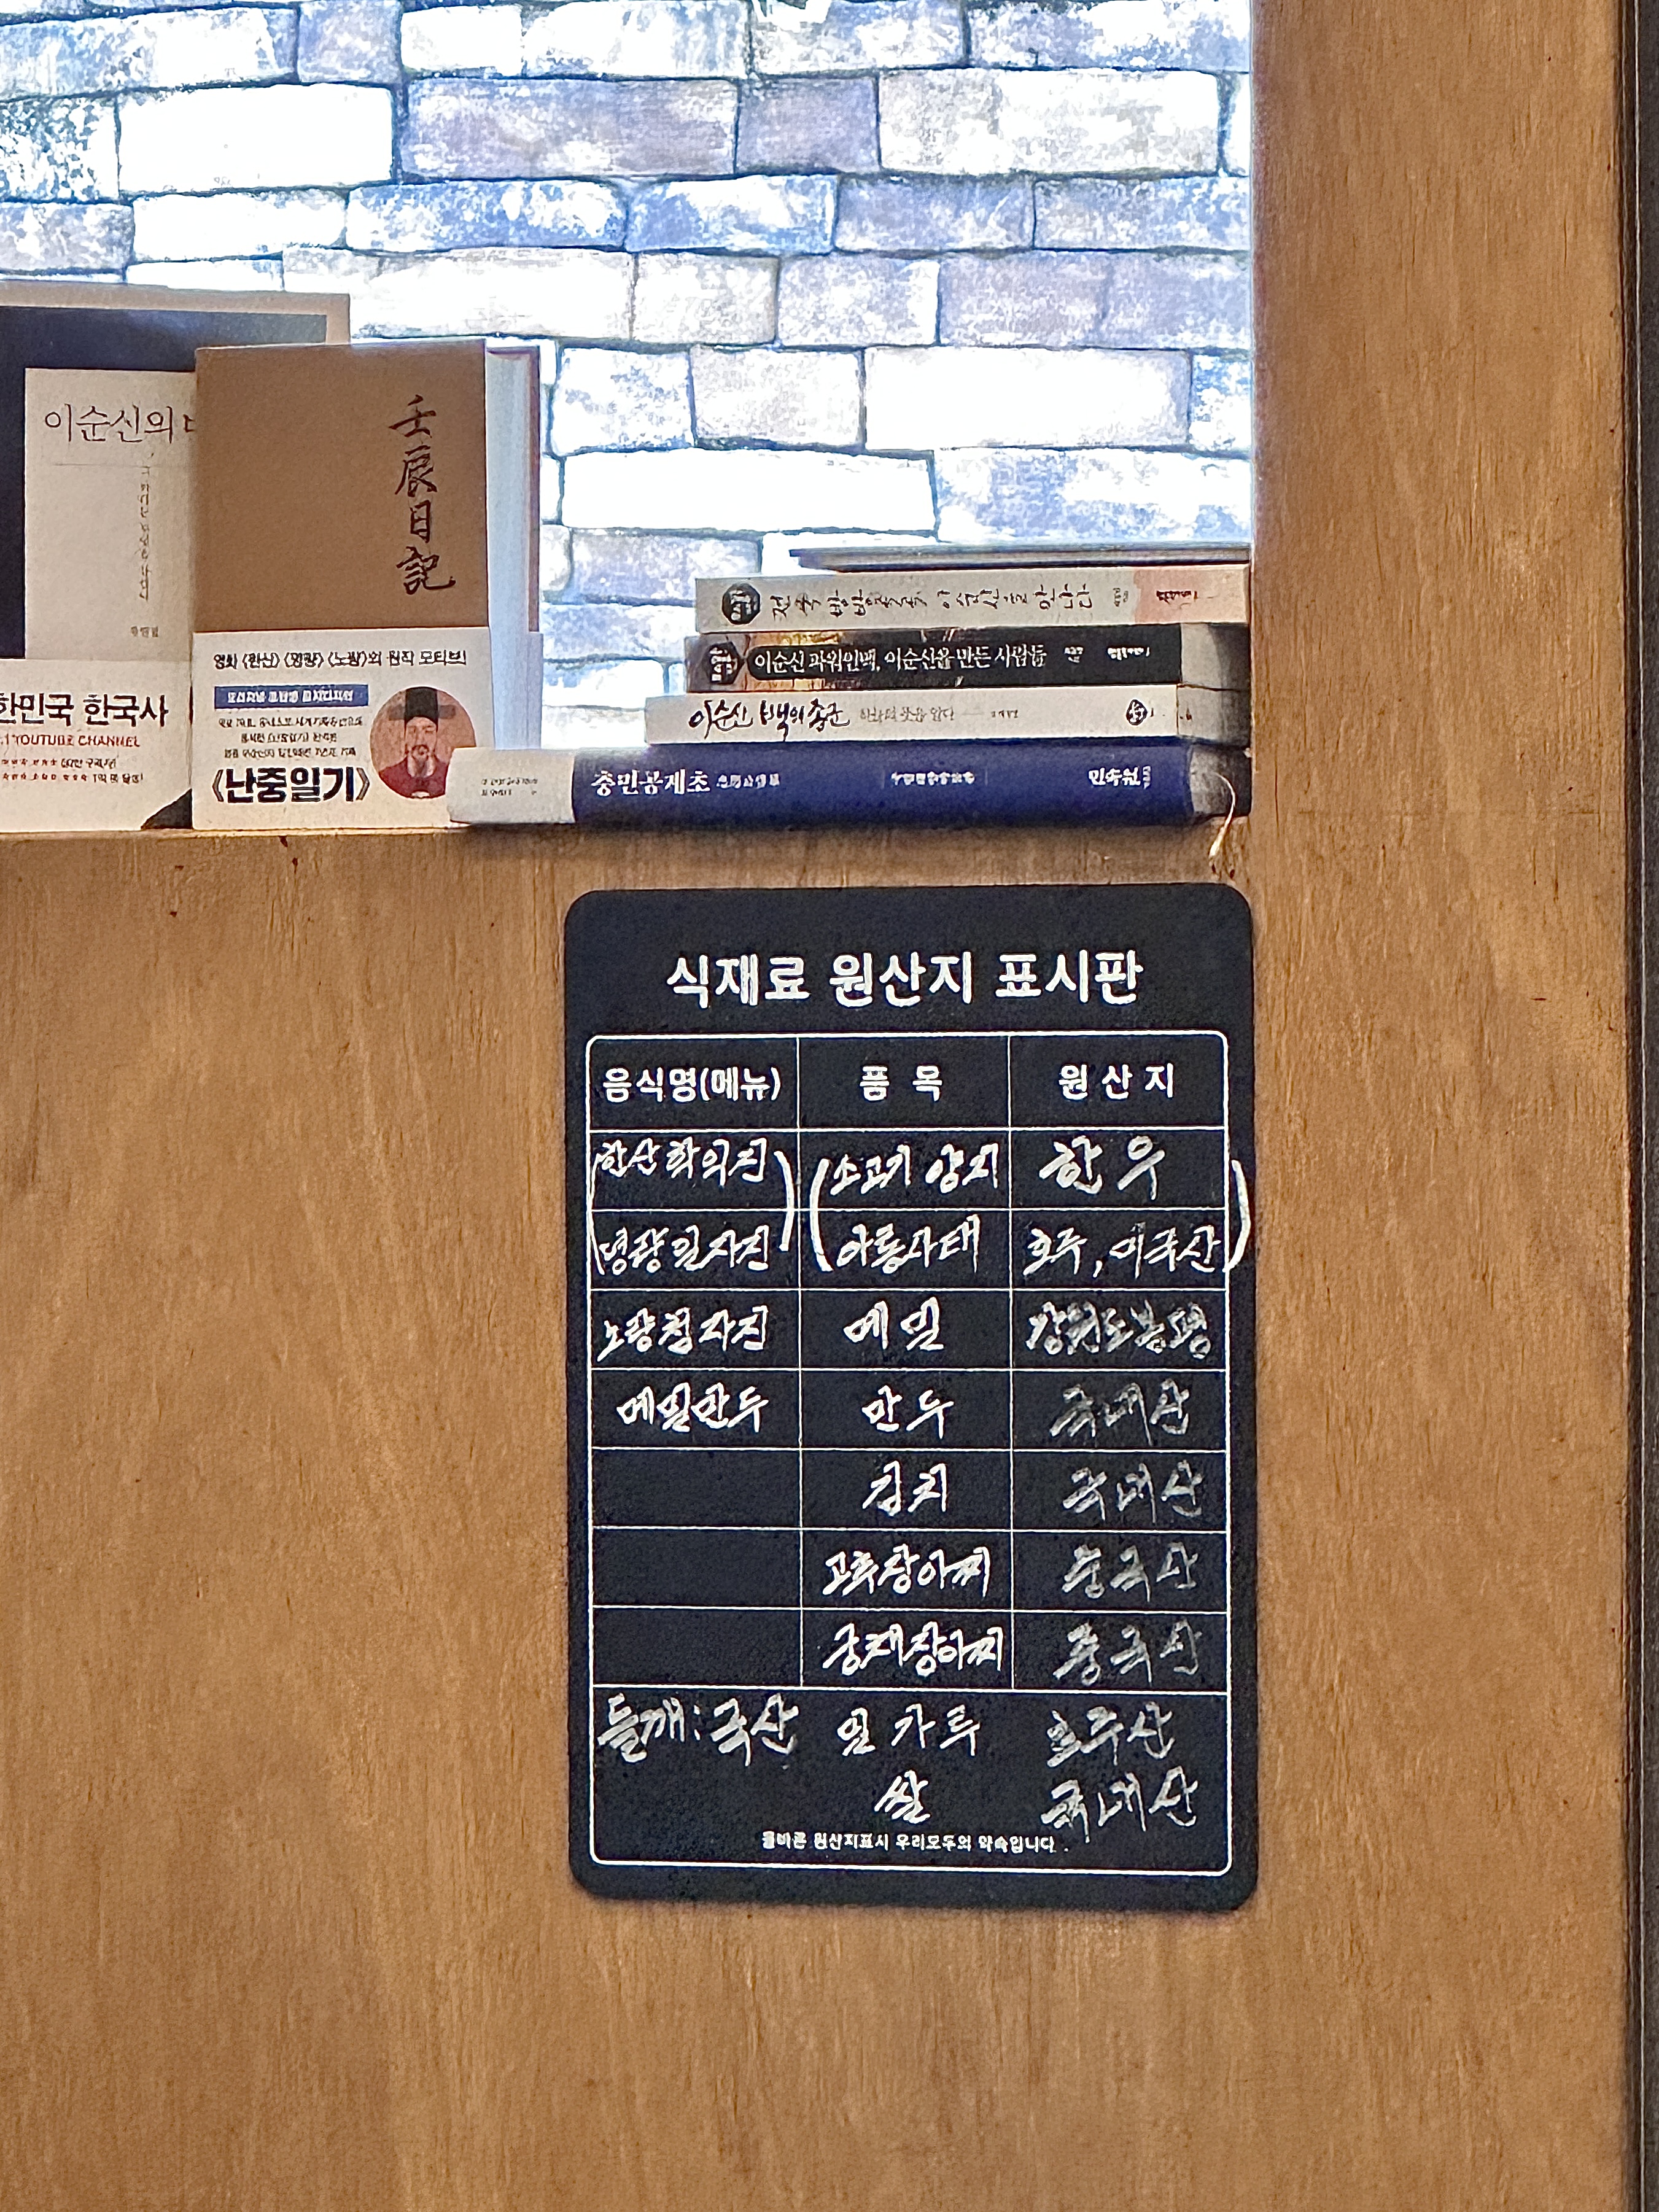 이순신의
壬辰日記
영화 〈한산〉 〈명량〉 〈노량〉의 원작 모티브!
《난중일기》
한민국 한국사
YOUTUBE CHANNEL
전쟁 이순신을 만나다
이순신 파워인맥, 이순신을 만든 사람들
이순신 백의종군
충민공계초 민속원
식재료 원산지 표시판
음식명(메뉴) 품 목 원 산 지
(한산학익진) (소고기 양지 한 우
명량일자진 아롱사태 호주, 미국산)
노량첨자진 메밀 강원도봉평
메밀만두 만두 국내산
김치 국내산
고추장아찌 중국산
궁채장아찌 중국산
들깨:국산 밀가루 호주산
쌀 국내산
올바른 원산지표시 우리모두의 약속입니다.